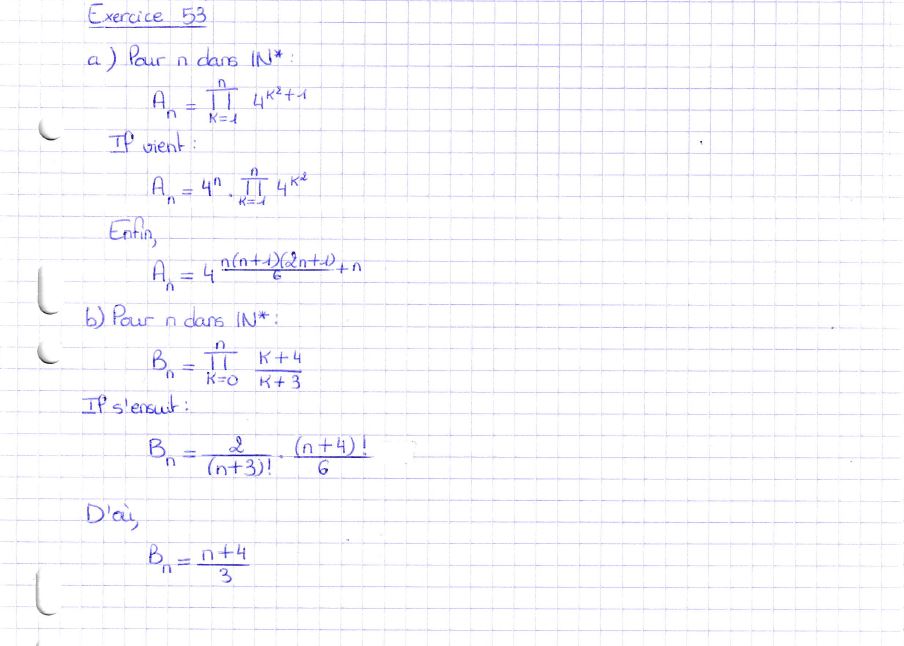 Exercice 53
a) Pour n dans IN* :
A_n = ∏_{K=1}^{n} 4^{K²+1}
Il vient :
A_n = 4^n . ∏_{K=1}^{n} 4^{K²}
Enfin,
A_n = 4^{\frac{n(n+1)(2n+1)}{6} + n}
b) Pour n dans IN* :
B_n = ∏_{K=0}^{n} \frac{K+4}{K+3}
Il s'ensuit :
B_n = \frac{2}{(n+3)!} . \frac{(n+4)!}{6}
D'où,
B_n = \frac{n+4}{3}